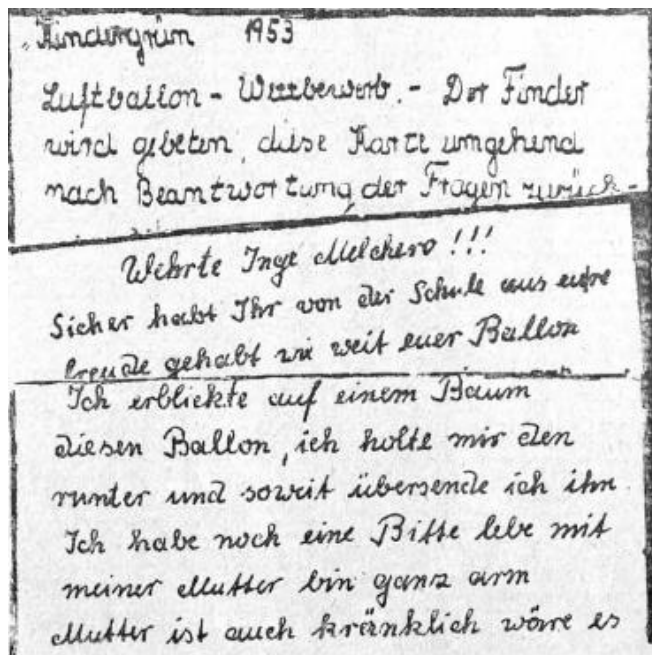 „Kindergrün 1953
Luftballon - Wettbewerb. - Der Finder
wird gebeten, diese Karte umgehend
nach Beantwortung der Fragen zurück-
Wehrte Inge Melchero!!!
Sicher habt Ihr von der Schule aus eure
Freude gehabt wie weit euer Ballon
Ich erblickte auf einem Baum
diesen Ballon, ich holte mir den
runter und soweit übersende ich ihn
Ich habe noch eine Bitte lebe mit
meiner Mutter bin ganz arm
Mutter ist auch kränklich wäre es